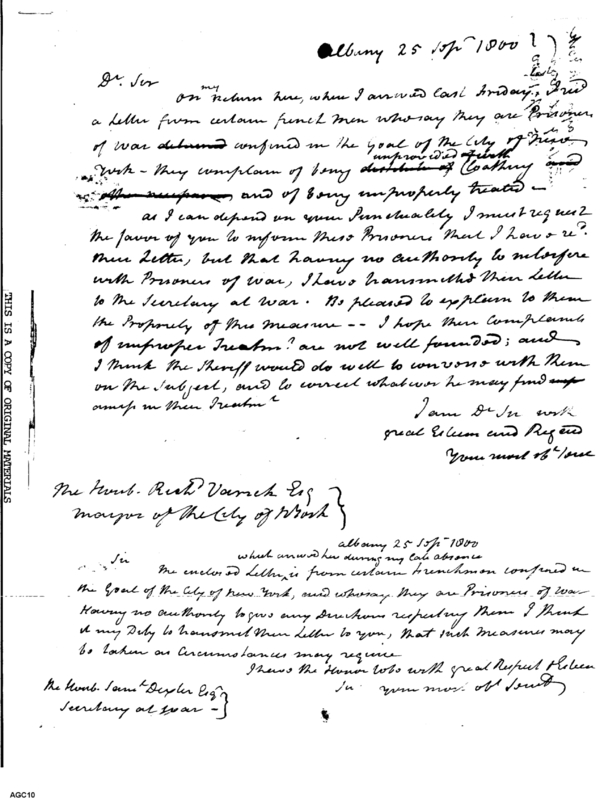 Albany 25 Sepr 1800
Dr. Sir
my
On Return here, where I arrived last Friday, I red
a Letter from certain french men who say they are Prisoners
of war detained confined in the Goal of the City of New
unprovided with
York - they complain of being destitute of Cloathing and
other necessaries and of being improperly treated -
as I can depend on your Punctuality I must request
the favor of you to inform these Prisoners that I have red.
their Letter, but that having no authority to interfere
with Prisoners of war, I have transmitted their Letter
to the Secretary at war. Be pleased to explain to them
the Propriety of this measure -- I hope their Complaints
of improper Treatmt. are not well founded; and
I think the Sheriff would do well to converse with them
on the Subject, and to correct whatever he may find
amiss in their Treatmt
I am Dr Sir with
great Esteem and Regard
Your most obt Servt
The Honb. Richd Varick Esq
Mayor of the City of NYork
albany 25 Sepr 1800
which arrived here during my late absence
Sir
The enclosed Letter, is from certain Frenchmen confined in
the Goal of the City of New York, and who say they are Prisoners of war
Having no authority to give any Directions respecting them I think
it my Duty to transmit their Letter to you, that such measures may
be taken as Circumstances may require
I have the Honor to be with great Respect & Esteem
Sir your most obt Servt
The Honb. Saml. Dexter Esqr
Secretary at war -
THIS IS A COPY OF ORIGINAL MATERIALS
AGC10